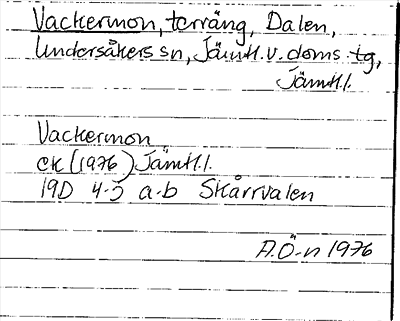 Vackermon, terräng, Dalen,
Undersåkers sn, Jämtl. v. doms. tg,
Jämtl. l.
Vackermon
CK (1976) Jämtl. l.
19D 4-5 a-b Skårrvalen
A.Ö-n 1976